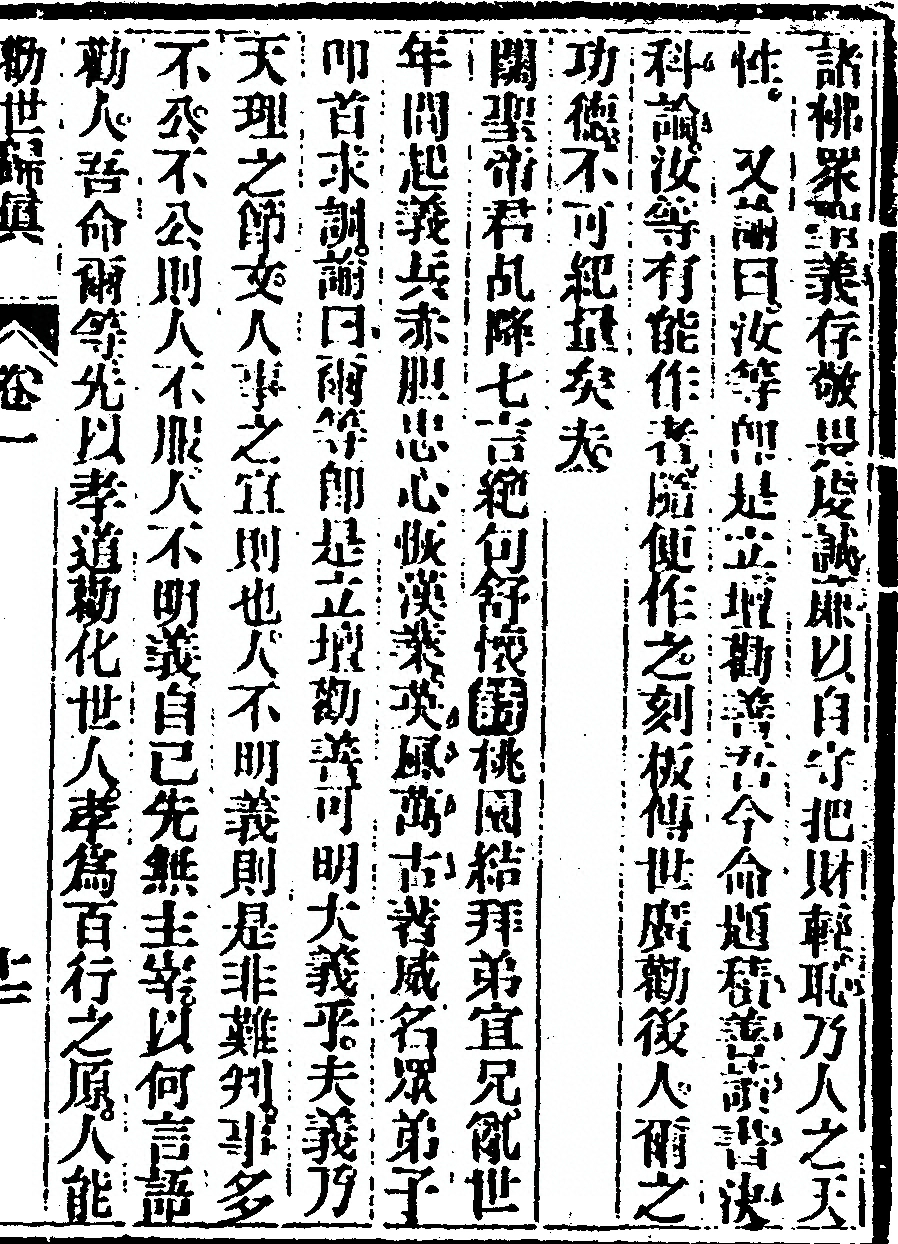 諸佛眾聖義存敬畏虔誠廉以自守把財輕恥乃人之天
性。又諭曰汝等卽是立壇勸善吾今命題積善讀書決
科諭汝等有能作者隨便作之刻板傳世廣勸後人爾之
功德不可紀量矣夫
關聖帝君乩降七言絕句舒懷詩桃園結拜弟宜兄亂世
年間起義兵赤胆忠心恢漢業英風萬古著威名眾弟子
叩首求訓諭曰爾等卽是立壇勸善可明大義乎夫義乃
天理之節文人事之宜則也人不明義則是非難判事多
不公不公則人不服人不明義自己先無主宰以何言語
勸人吾命爾等先以孝道勸化世人孝為百行之原人能
勸世歸真
卷一
十二